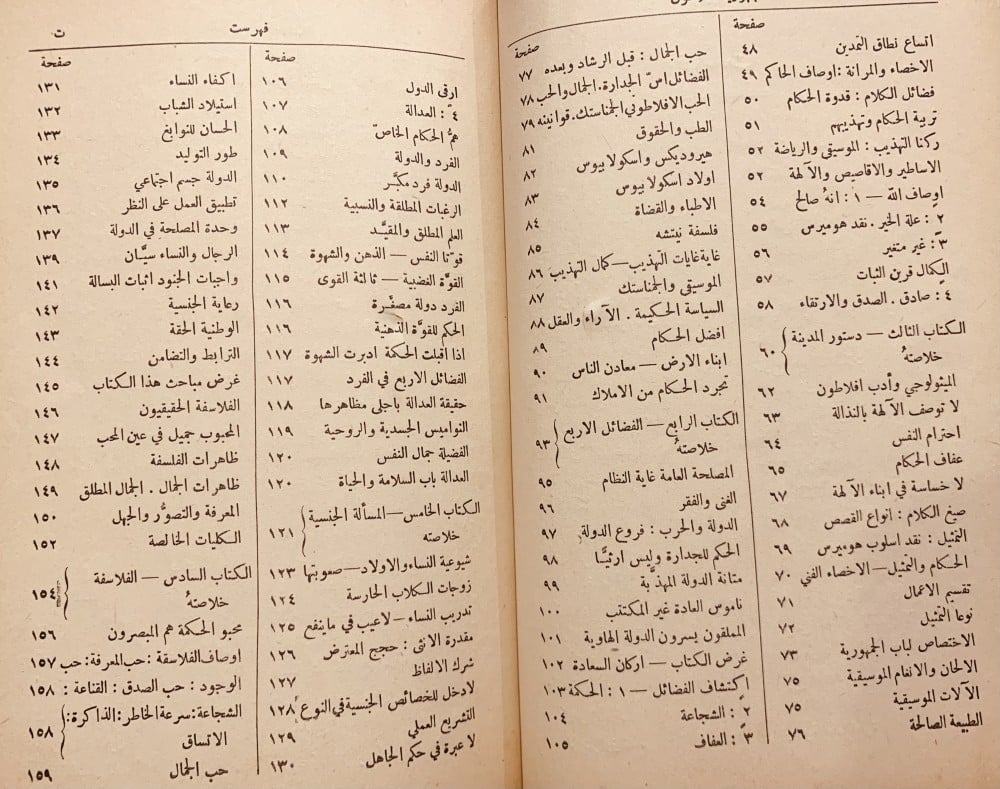 صفحة
اتساع نطاق التمدين ٤٨
الاخصاء والمرانة : اوصاف الحاكم ٤٩
فضائل الكلام : قدوة الحكام ٥٠
تربية الحكام وتهذيبهم ٥١
ركنا التهذيب : الموسيقى والرياضة ٥٢
الاساطير والاقاصيص والآلهة ٥٢
اوصاف الله — ١ : انهُ صالح ٥٤
٢ : علة الخير . نقد هوميرس ٥٥
٣ : غير متغير ٥٦
الكمال قرين الثبات ٥٧
٤ : صادق . الصدق والارتقاء ٥٨
الكتاب الثالث — دستور المدينة
خلاصتهُ ٦٠
الميثولوجي وأدب افلاطون ٦٢
لا توصف الآلهة بالنذالة ٦٣
احترام النفس ٦٤
عفاف الحكام ٦٥
لا خساسة في ابناء الآلهة ٦٧
صيغ الكلام : انواع القصص ٦٨
التمثيل : نقد اسلوب هوميرس ٦٩
الحكام والتمثيل — الاخصاء الفني ٧٠
تقسيم الاعمال ٧١
نوعا التمثيل ٧٢
الاختصاص لباب الجمهورية ٧٣
الالحان والانغام الموسيقية ٧٥
الآلات الموسيقية ٧٥
الطبيعة الصالحة ٧٦
صفحة
حب الجمال : قبل الرشاد وبعده ٧٧
الفضائل اسّ الجدارة . الجمال والحب ٧٨
الحب الافلاطوني الجمناستك . قوانينه ٧٩
الطب والحقوق ٨١
هيروديكس واسكولابيوس ٨٢
اولاد اسكولابيوس ٨٣
الاطباء والقضاة ٨٤
فلسفة نيتشه ٨٥
غاية غايات التهذيب — كمال التهذيب ٨٦
الموسيقى والجمناستك ٨٧
السياسة الحكيمة . الآراء والعقل ٨٨
افضل الحكام ٨٩
ابناء الارض — معادن الناس ٩٠
تجرد الحكام من الاملاك ٩١
الكتاب الرابع — الفضائل الاربع
خلاصتهُ ٩٣
المصلحة العامة غاية النظام ٩٥
الغنى والفقر ٩٦
الدولة والحرب : فروع الدولة ٩٧
الحكم للجدارة وليس ارثيًّا ٩٨
متانة الدولة المهذبة ٩٩
ناموس العادة غير المكتتب ١٠٠
المملقون يسرون الدولة الهاوية ١٠١
غرض الكتاب — اركان السعادة ١٠٢
اكتشاف الفضائل — ١ : الحكمة ١٠٣
٢ : الشجاعة ١٠٤
٣ : العفاف ١٠٥
فهرست ت
صفحة
ارقى الدول ١٠٦
٤ : العدالة ١٠٧
همُّ الحكام الخاصّ ١٠٨
الفرد والدولة ١٠٩
الدولة فرد مكبَّر ١١٠
الرغبات المطلقة والنسبية ١١٢
العلم المطلق والمقيَّد ١١٣
قوتا النفس — الذهن والشهوة ١١٤
القوَّة الغضبية — ثالثة القوى ١١٥
الفرد دولة مصغَّرة ١١٦
الحكم للقوَّة الذهنية ١١٦
اذا اقبلت الحكمة ادبرت الشهوة ١١٧
الفضائل الاربع في الفرد ١١٧
حقيقة العدالة باجلى مظاهرها ١١٨
النواميس الجسدية والروحية ١١٩
الفضيلة جمال النفس ١٢٠
العدالة باب السلامة والحياة ١٢٠
الكتاب الخامس — المسألة الجنسية
خلاصته ١٢١
شيوعية النساء والاولاد — صعوبتها ١٢٣
زوجات الكلاب الحارسة ١٢٤
تدريب النساء — لاعيب في ماينفع ١٢٥
مقدرة الانثى : حجج المعترض ١٢٦
شرك الالفاظ ١٢٧
لادخل للخصائص الجنسية في النوع ١٢٨
التشريع العملي ١٢٩
لا عبرة في حكم الجاهل ١٣٠
صفحة
اكفاء النساء ١٣١
استيلاد الشباب ١٣٢
الحسان للنوابغ ١٣٣
طور التوليد ١٣٤
الدولة جسم اجتماعي ١٣٥
تطبيق العمل على النظر ١٣٦
وحدة المصلحة في الدولة ١٣٧
الرجال والنساء سيَّان ١٣٩
واجبات الجنود اثبات البسالة ١٤١
رعاية الجنسية ١٤٢
الوطنية الحقة ١٤٣
الترابط والتضامن ١٤٤
غرض مباحث هذا الكتاب ١٤٥
الفلاسفة الحقيقيون ١٤٦
المحبوب جميل في عين المحب ١٤٧
ظاهرات الفلسفة ١٤٨
ظاهرات الجمال . الجمال المطلق ١٤٩
المعرفة والتصوُّر والجهل ١٥٠
الكليات الخالصة ١٥٢
الكتاب السادس — الفلاسفة
خلاصتهُ ١٥٤
محبو الحكمة هم المبصرون ١٥٦
اوصاف الفلاسفة : حب المعرفة : حب ١٥٧
الوجود : حب الصدق : القناعة : ١٥٨
الشجاعة : سرعة الخاطر : الذاكرة :
الاتساق ١٥٨
حب الجمال ١٥٩